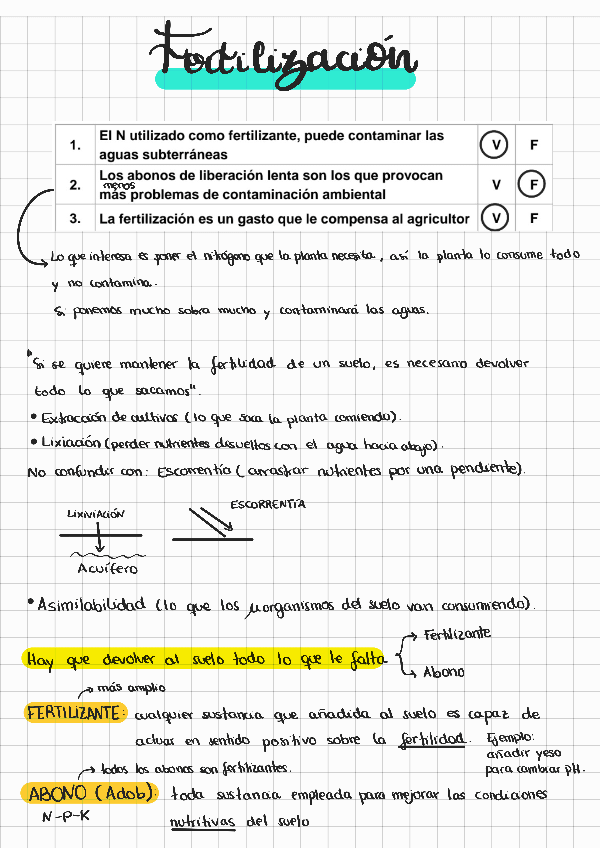 Fertilización
1. El N utilizado como fertilizante, puede contaminar las aguas subterráneas V F
2. Los abonos de liberación lenta son los que provocan
menos
más problemas de contaminación ambiental V F
3. La fertilización es un gasto que le compensa al agricultor V F
Lo que interesa es poner el nitrógeno que la planta necesita, así la planta lo consume todo
y no contamina.
Si ponemos mucho sobra mucho y contaminará las aguas.
"Si se quiere mantener la fertilidad de un suelo, es necesario devolver
todo lo que sacamos".
• Extracción de cultivos (lo que saca la planta comiendo).
• Lixiación (perder nutrientes disueltos con el agua hacia abajo).
No confundir con: Escorrentía (arrastrar nutrientes por una pendiente).
LIXIVIACIÓN
ESCORRENTÍA
Acuífero
• Asimilabilidad (lo que los μorganismos del suelo van consumiendo).
Fertilizante
Hay que devolver al suelo todo lo que le falta
Abono
más amplio
FERTILIZANTE: cualquier sustancia que añadida al suelo es capaz de
actuar en sentido positivo sobre la fertilidad. Ejemplo:
añadir yeso
para cambiar pH.
todos los abonos son fertilizantes.
ABONO (Adob): toda sustancia empleada para mejorar las condiciones
N-P-K
nutritivas del suelo